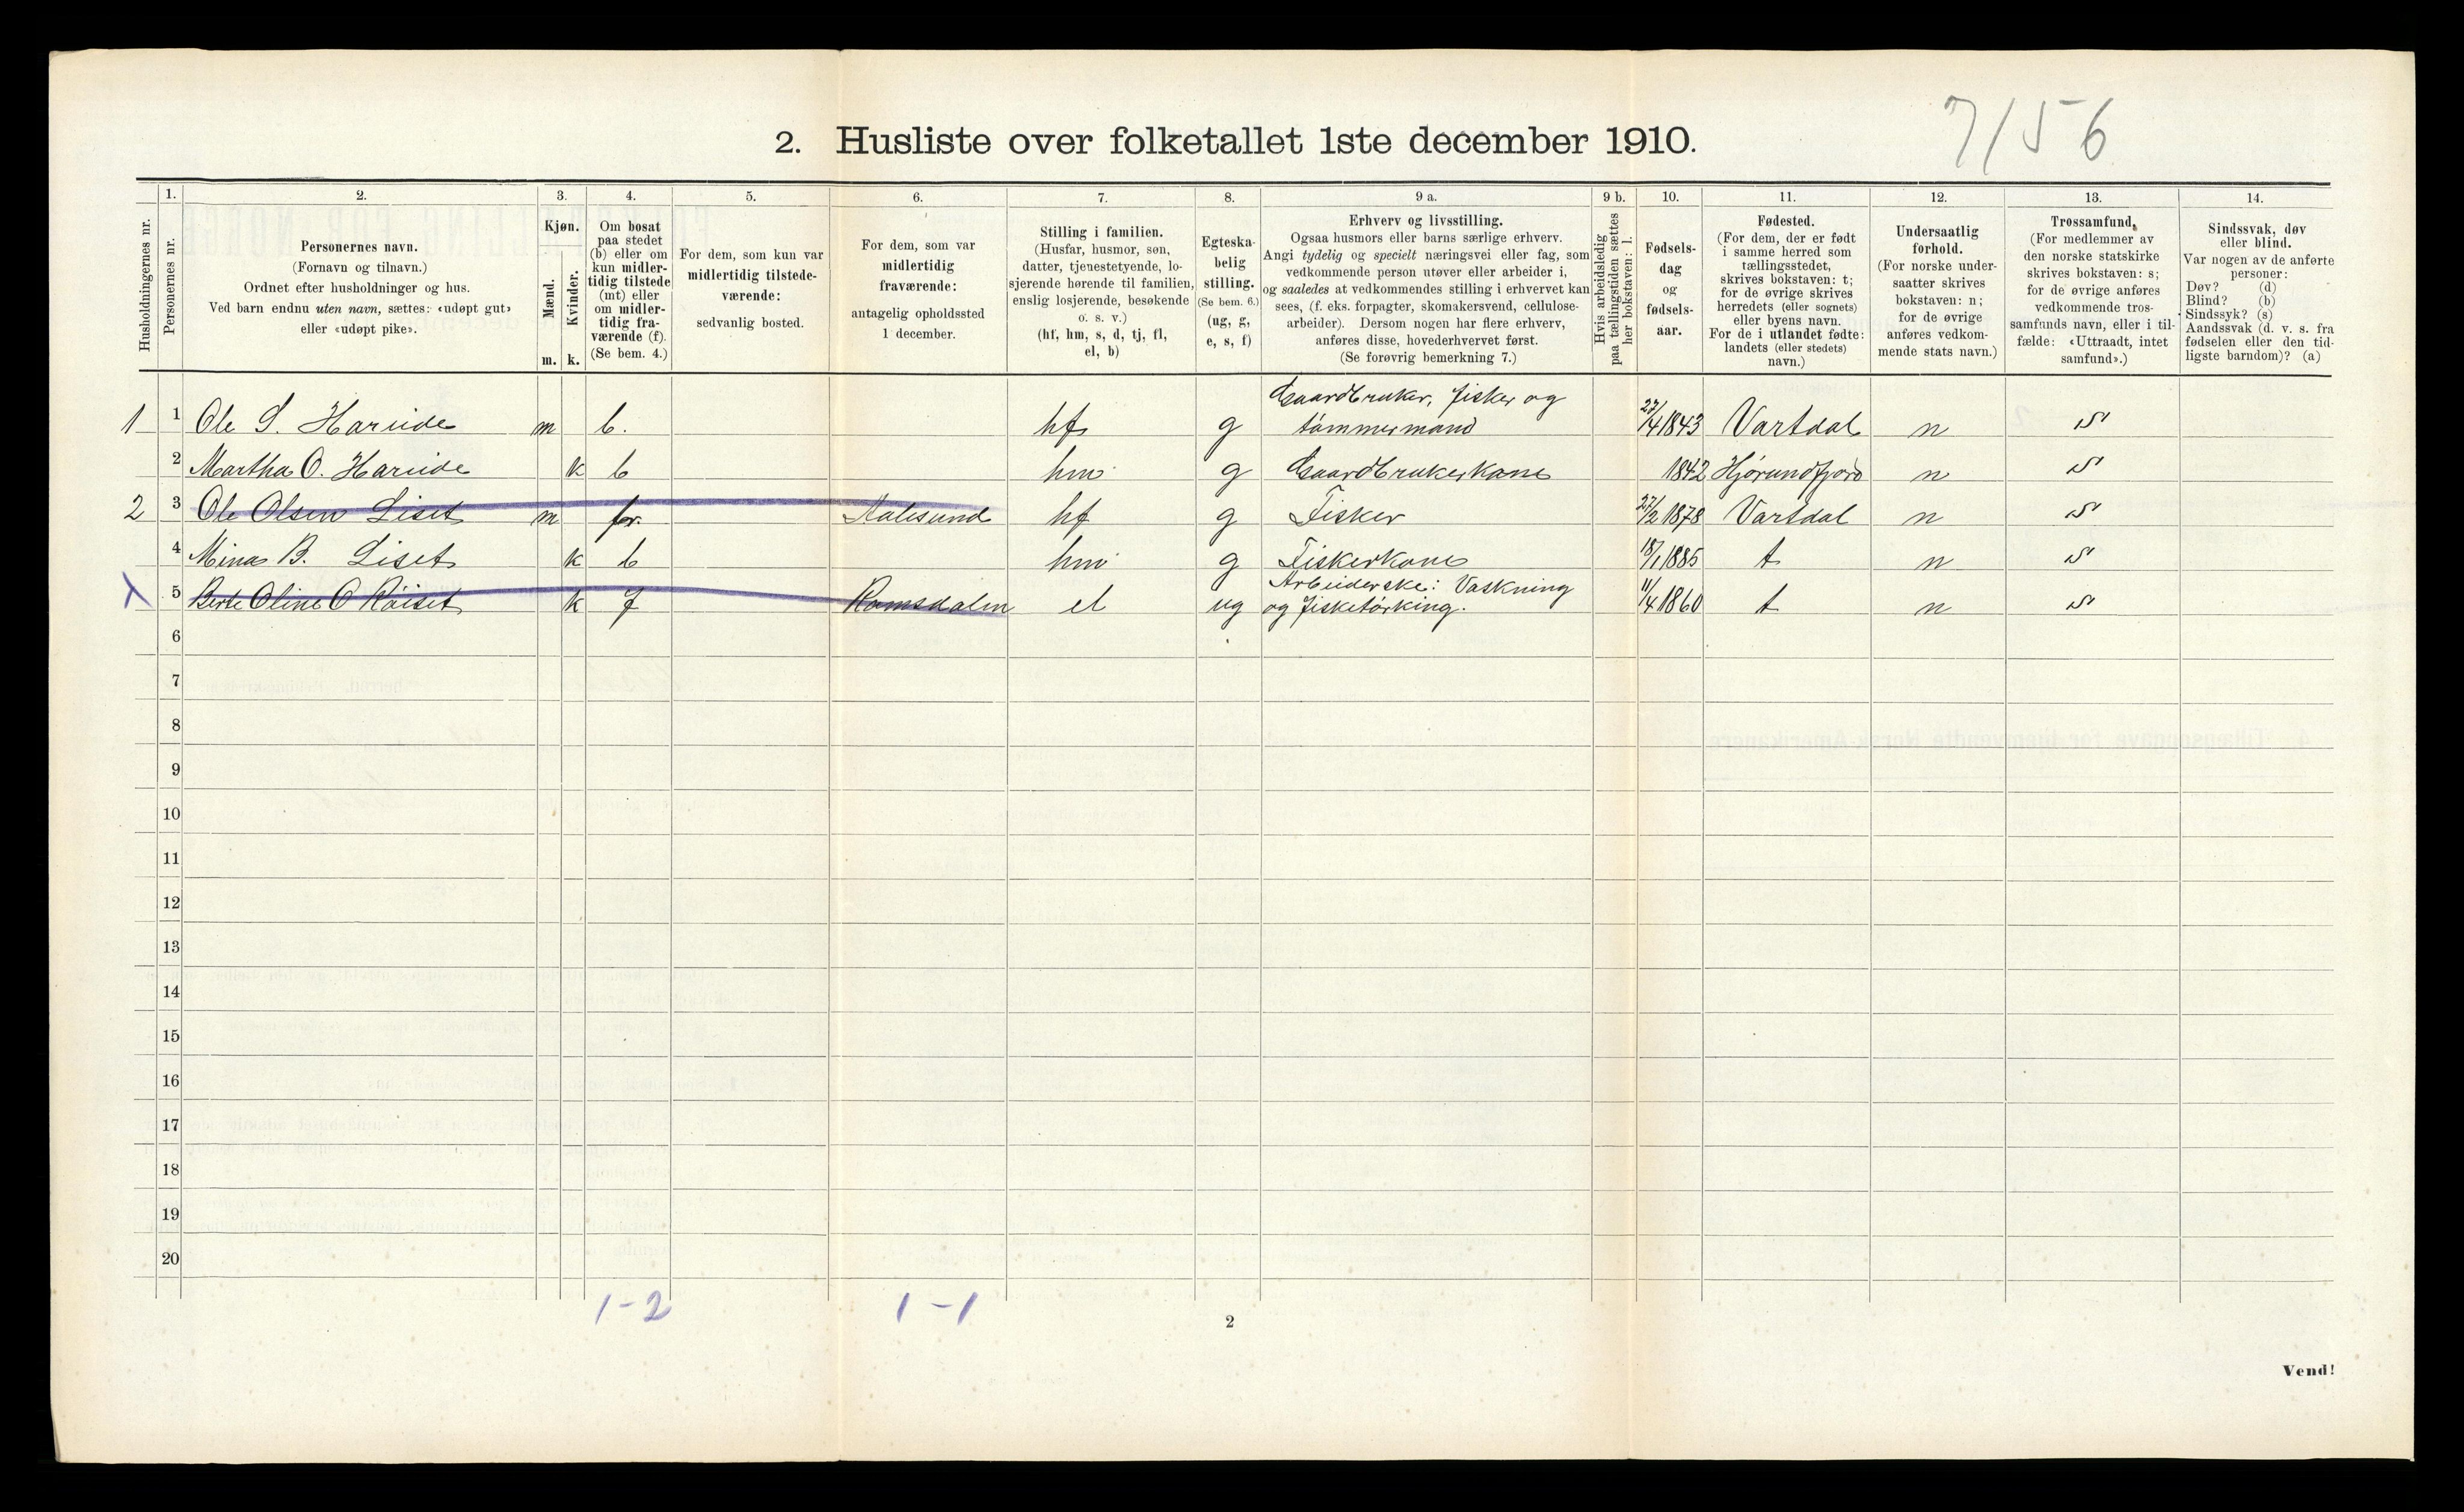 7/56
2. Husliste over folketallet 1ste december 1910.
Husholdningernes nr.
1.
Personernes nr.
2.
Personernes navn.
(Fornavn og tilnavn.)
Ordnet efter husholdninger og hus.
Ved barn endnu uten navn, sættes: «udøpt gut»
eller «udøpt pike».
3.
Kjøn.
Mænd.
Kvinder.
m. k.
4.
Om bosat
paa stedet
(b) eller om
kun midler-
tidig tilstede
(mt) eller
om midler-
tidig fra-
værende (f).
(Se bem. 4.)
5.
For dem, som kun var
midlertidig tilstede-
værende:
sedvanlig bosted.
6.
For dem, som var
midlertidig
fraværende:
antagelig opholdssted
1 december.
7.
Stilling i familien.
(Husfar, husmor, søn,
datter, tjenestetyende, lo-
sjerende hørende til familien,
enslig losjerende, besøkende
o. s. v.)
(hf, hm, s, d, tj, fl,
el, b)
8.
Egteska-
belig
stilling.
(Se bem. 6.)
(ug, g,
e, s, f)
9 a.
Erhverv og livsstilling.
Ogsaa husmors eller barns særlige erhverv.
Angi tydelig og specielt næringsvei eller fag, som
vedkommende person utøver eller arbeider i,
og saaledes at vedkommendes stilling i erhvervet kan
sees, (f. eks. forpagter, skomakersvend, cellulose-
arbeider). Dersom nogen har flere erhverv,
anføres disse, hovederhvervet først.
(Se forøvrig bemerkning 7.)
9 b.
Hvis arbeidsledig
paa tællingstiden sættes
her bokstaven: l.
10.
Fødsels-
dag
og
fødsels-
aar.
11.
Fødested.
(For dem, der er født
i samme herred som
tællingsstedet,
skrives bokstaven: t;
for de øvrige skrives
herredets (eller sognets)
eller byens navn.
For de i utlandet fødte:
landets (eller stedets)
navn.)
12.
Undersaatlig
forhold.
(For norske under-
saatter skrives
bokstaven: n;
for de øvrige
anføres vedkom-
mende stats navn.)
13.
Trossamfund.
(For medlemmer av
den norske statskirke
skrives bokstaven: s;
for de øvrige anføres
vedkommende tros-
samfunds navn, eller i til-
fælde: «Uttraadt, intet
samfund».)
14.
Sindssvak, døv
eller blind.
Var nogen av de anførte
personer:
Døv? (d)
Blind? (b)
Sindssyk? (s)
Aandssvak (d. v. s. fra
fødselen eller den tid-
ligste barndom)? (a)
Gaardbruker, fisker og
1 1 Ole S. Hareide m b. hf g tømmermand 27/4 1843 Vartdal n s
2 Martha O. Hareide k b hm g Gaardbrukerkone 1842 Hjørundfjord n s
2 3 Ole Olsen Liset m for. Aalesund hf g Fisker 27/2 1878 Vartdal n s
4 Mina B. Liset k b hm g Fiskerkone 18/1 1885 t n s
Arbeiderske: Vaskning
x 5 Berte Oline O Röiset k f Romsdalen el ug og fisketörking. 11/4 1860 t n s
6
7
8
9
10
11
12
13
14
15
16
17
18
19
20
1-2 1-1
2
Vend!